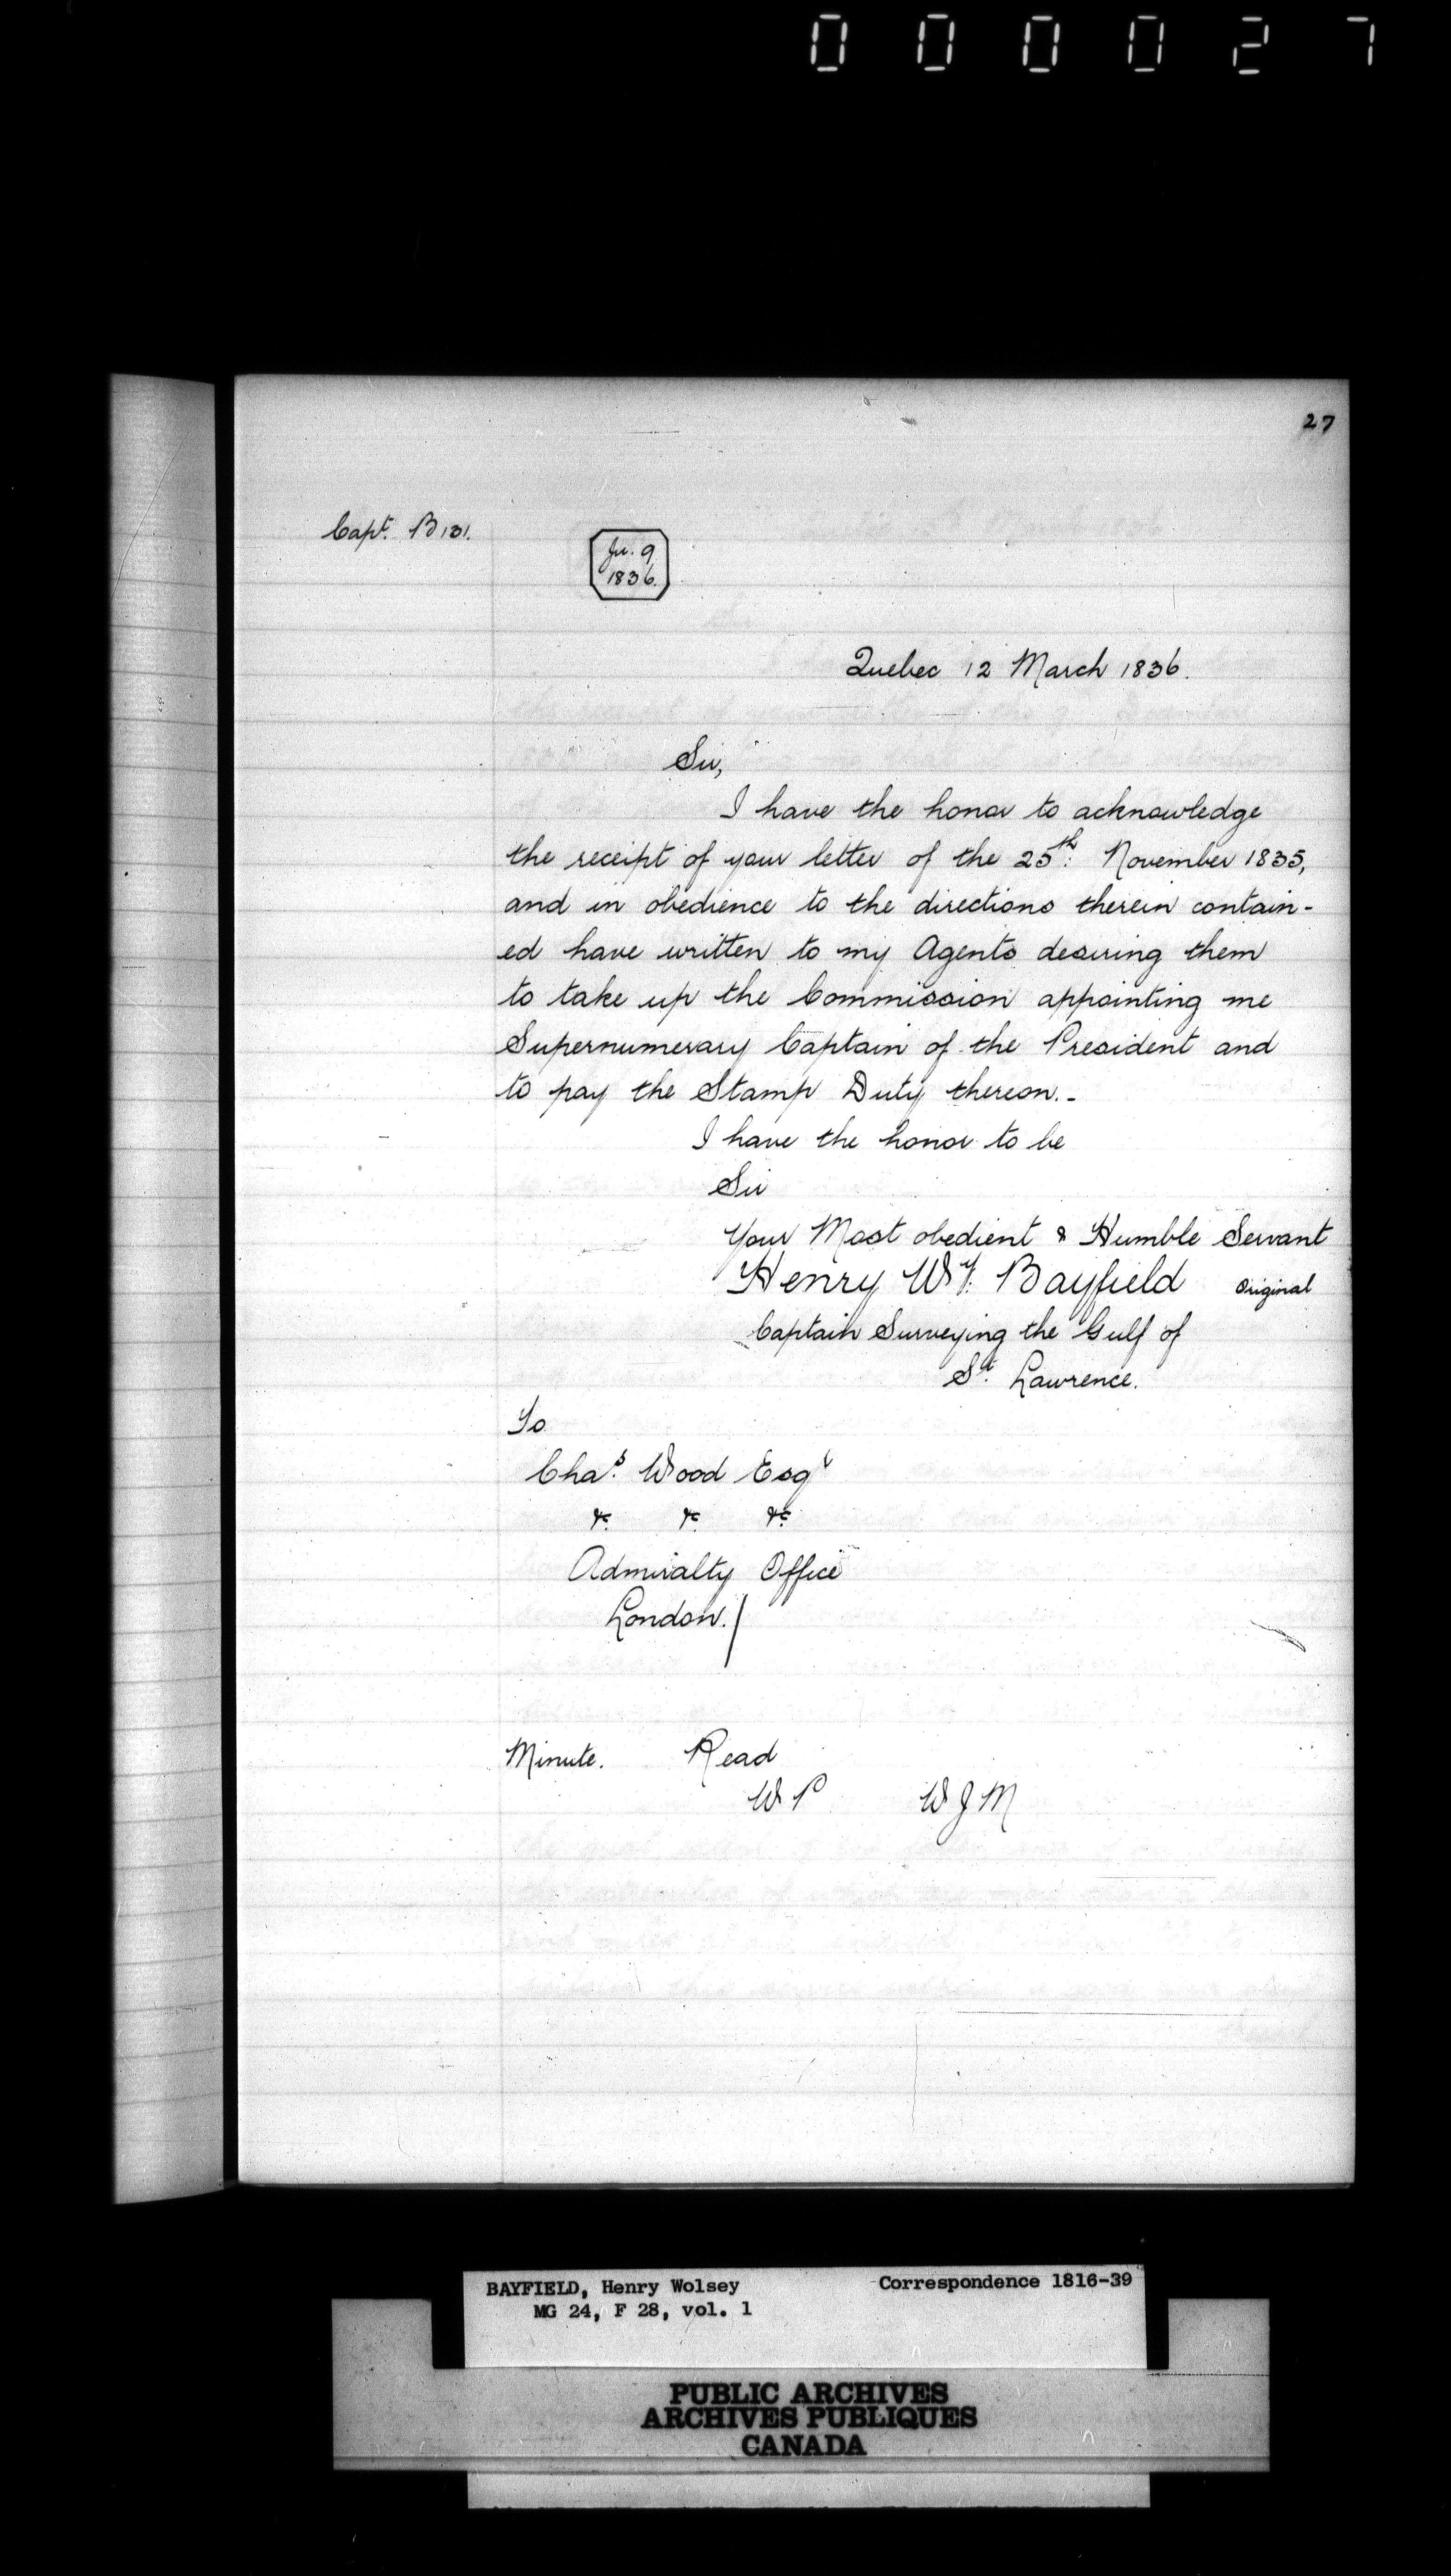 000027
27
Capt. B 131.
Ju. 9
1836.
Quebec 12 March 1836.
Sir,
I have the honor to acknowledge
the receipt of your letter of the 25th: November 1835,
and in obedience to the directions therein contain-
ed have written to my Agents desiring them
to take up the Commission appointing me
Supernumerary Captain of the President and
to pay the Stamp Duty thereon.-
I have the honor to be
Sir
Your Most obedient & Humble Servant
Henry Wy. Bayfield Original
Captain Surveying the Gulf of
St. Lawrence.
To
Chas. Wood Esqr
&c. &c. &c.
Admiralty Office
London./
Minute. Read
W P W J M
BAYFIELD, Henry Wolsey Correspondence 1816-39
MG 24, F 28, vol. 1
PUBLIC ARCHIVES
ARCHIVES PUBLIQUES
CANADA